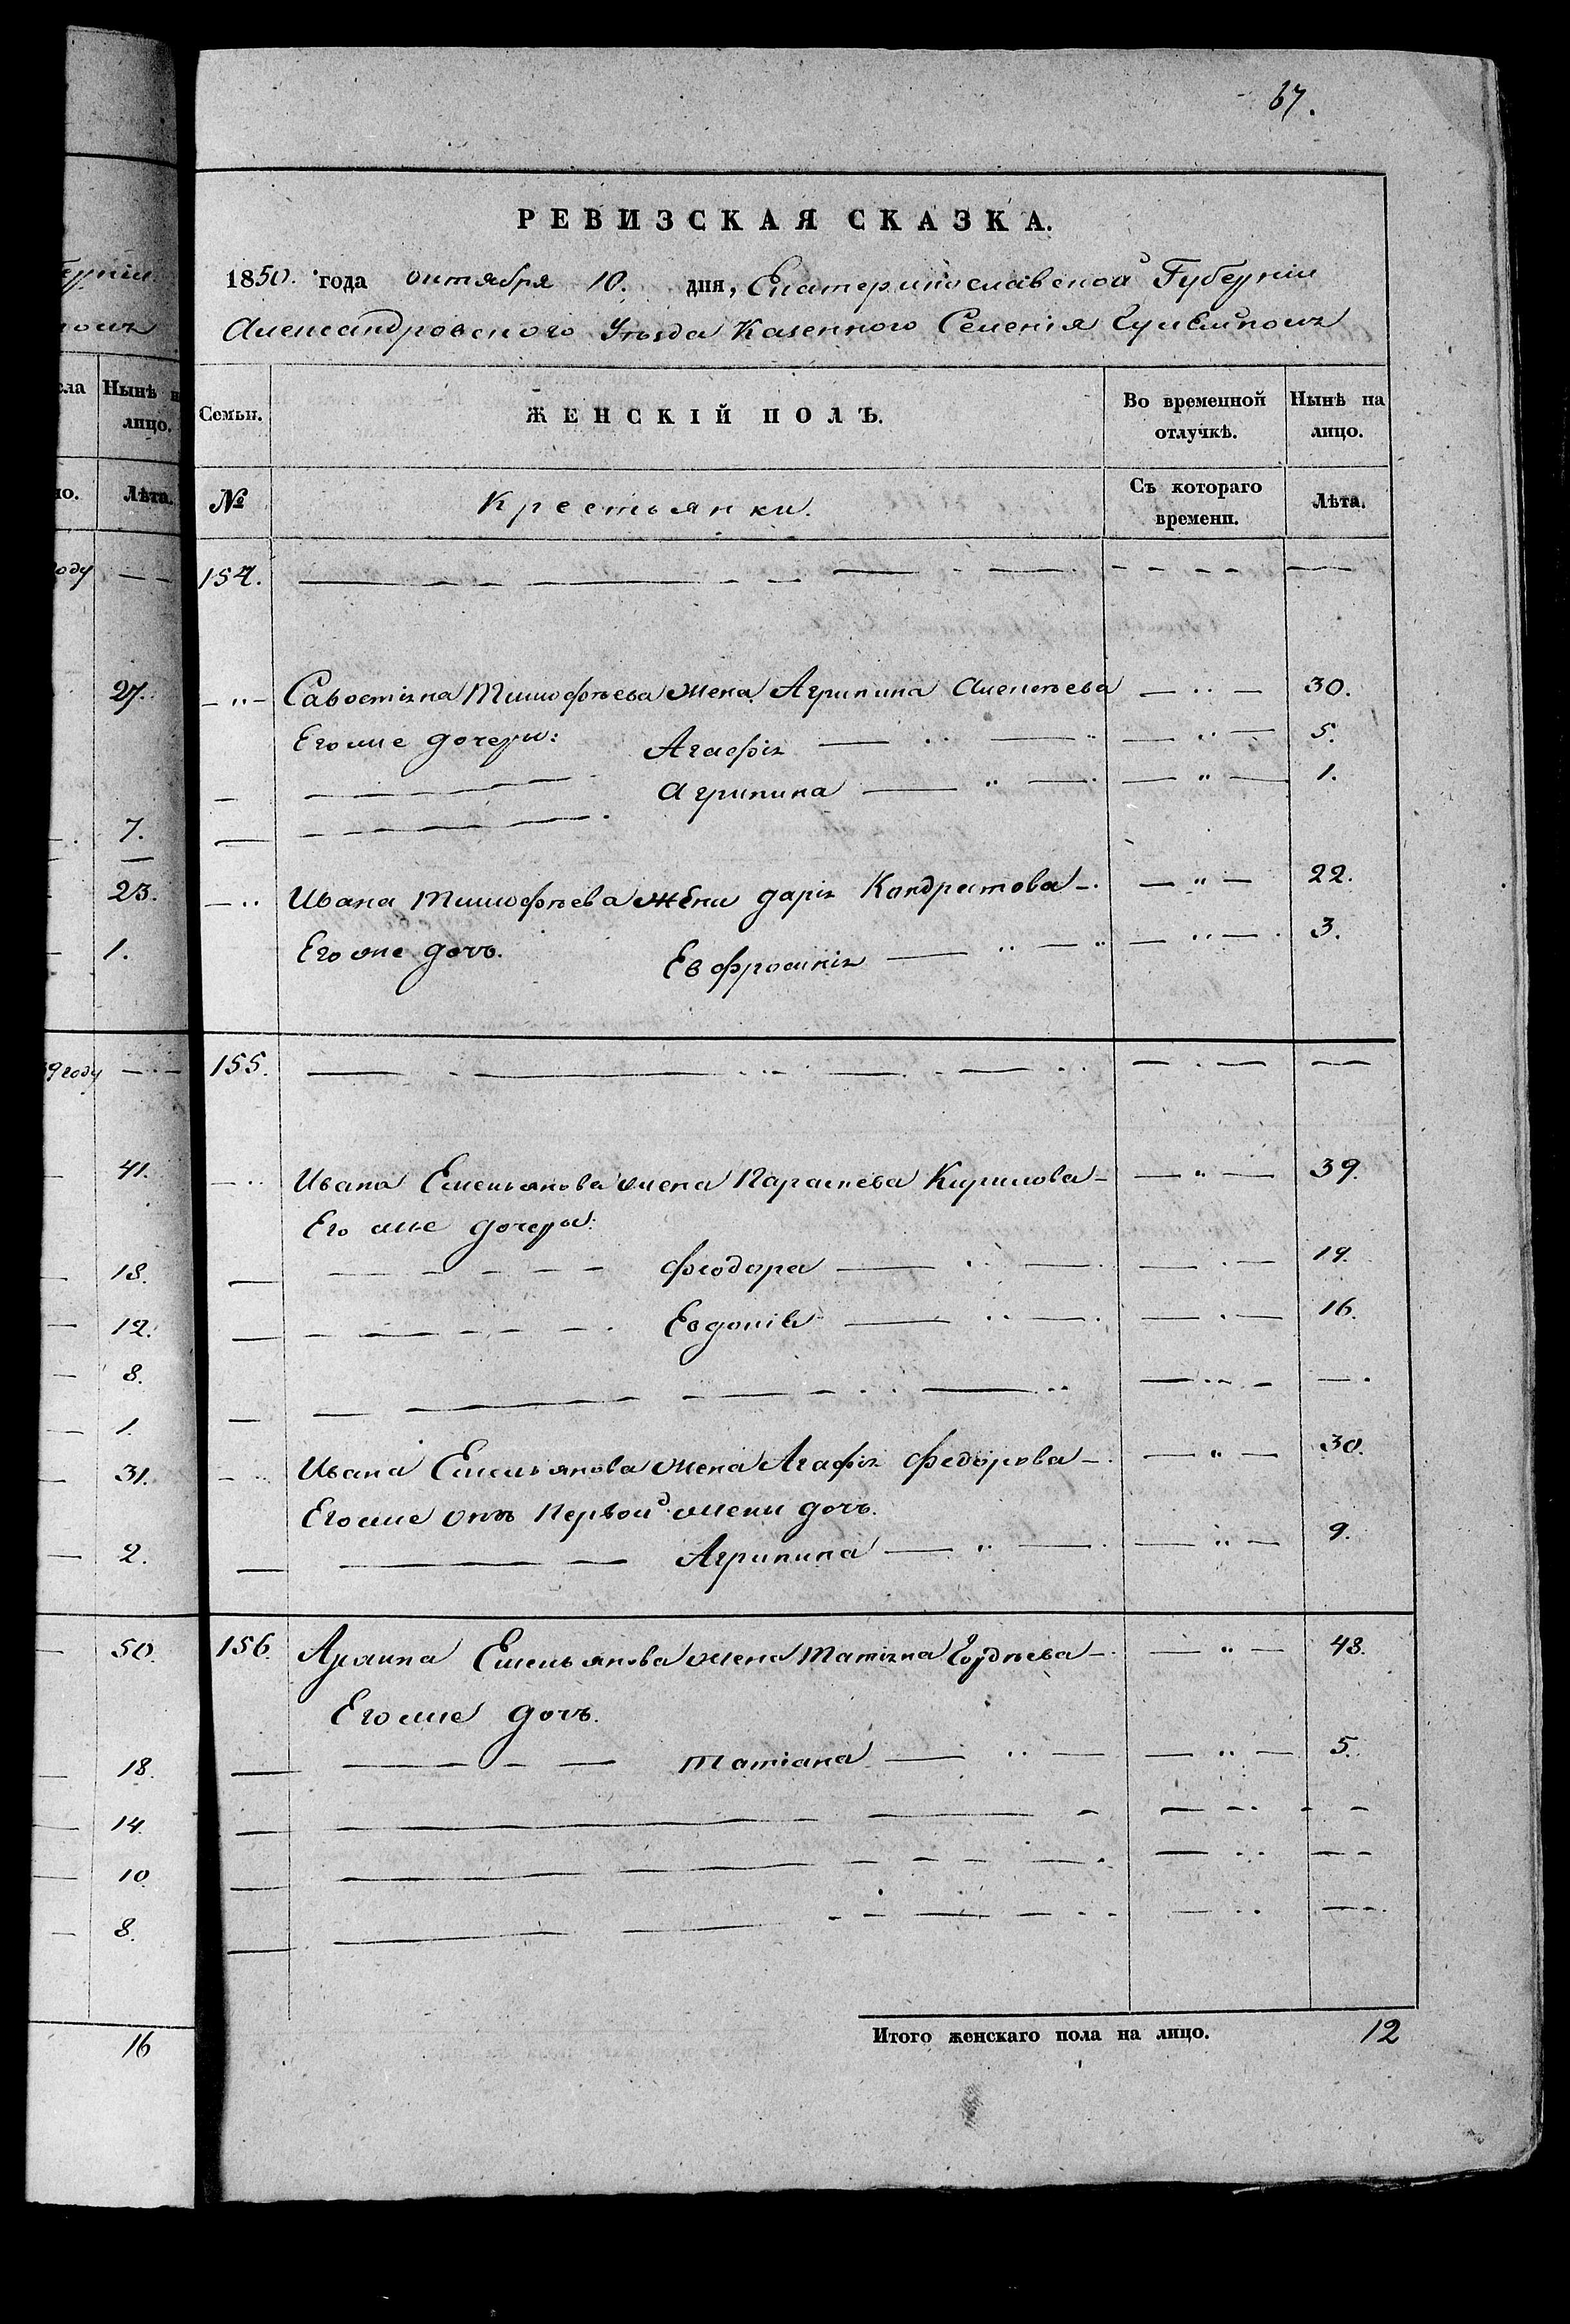 67.
РЕВИЗСКАЯ СКАЗКА.
1850. года октября 10. дня, Екатеринославской Губерніи
Александровского Уѣзда Казенного Селенія
Семьи. ЖЕНСКІЙ ПОЛЪ. Во временной отлучкѣ. Нынѣ на лицо.
№ Крестьянки. Съ котораго времени. Лѣта.
154.
Савостіяна Тимофѣева жена Агрипина Алексѣева 30.
Его же дочери: Агафія 5.
Агрипина 1.
Ивана Тимофѣева жена дарія Кандратова 22.
Его же дочь. Евфросинія 3.
155.
Ивана Емельянова жена Параскева Кирилова 39.
Его же дочери:
Феодора 19.
Евдокія 16.
Ивана Емельянова жена Агафія Федорова 30.
Его же отъ Первой жены дочь.
Агрипина 9.
156. Емельянова жена Татіяна Гордѣева 48.
Его же дочь.
Татіана 5.
Итого женскаго пола на лицо. 12
Нынѣ на лицо.
Лѣта.
27.
7.
23.
1.
41.
18.
12.
8.
1.
31.
2.
50.
18.
14.
10.
8.
16